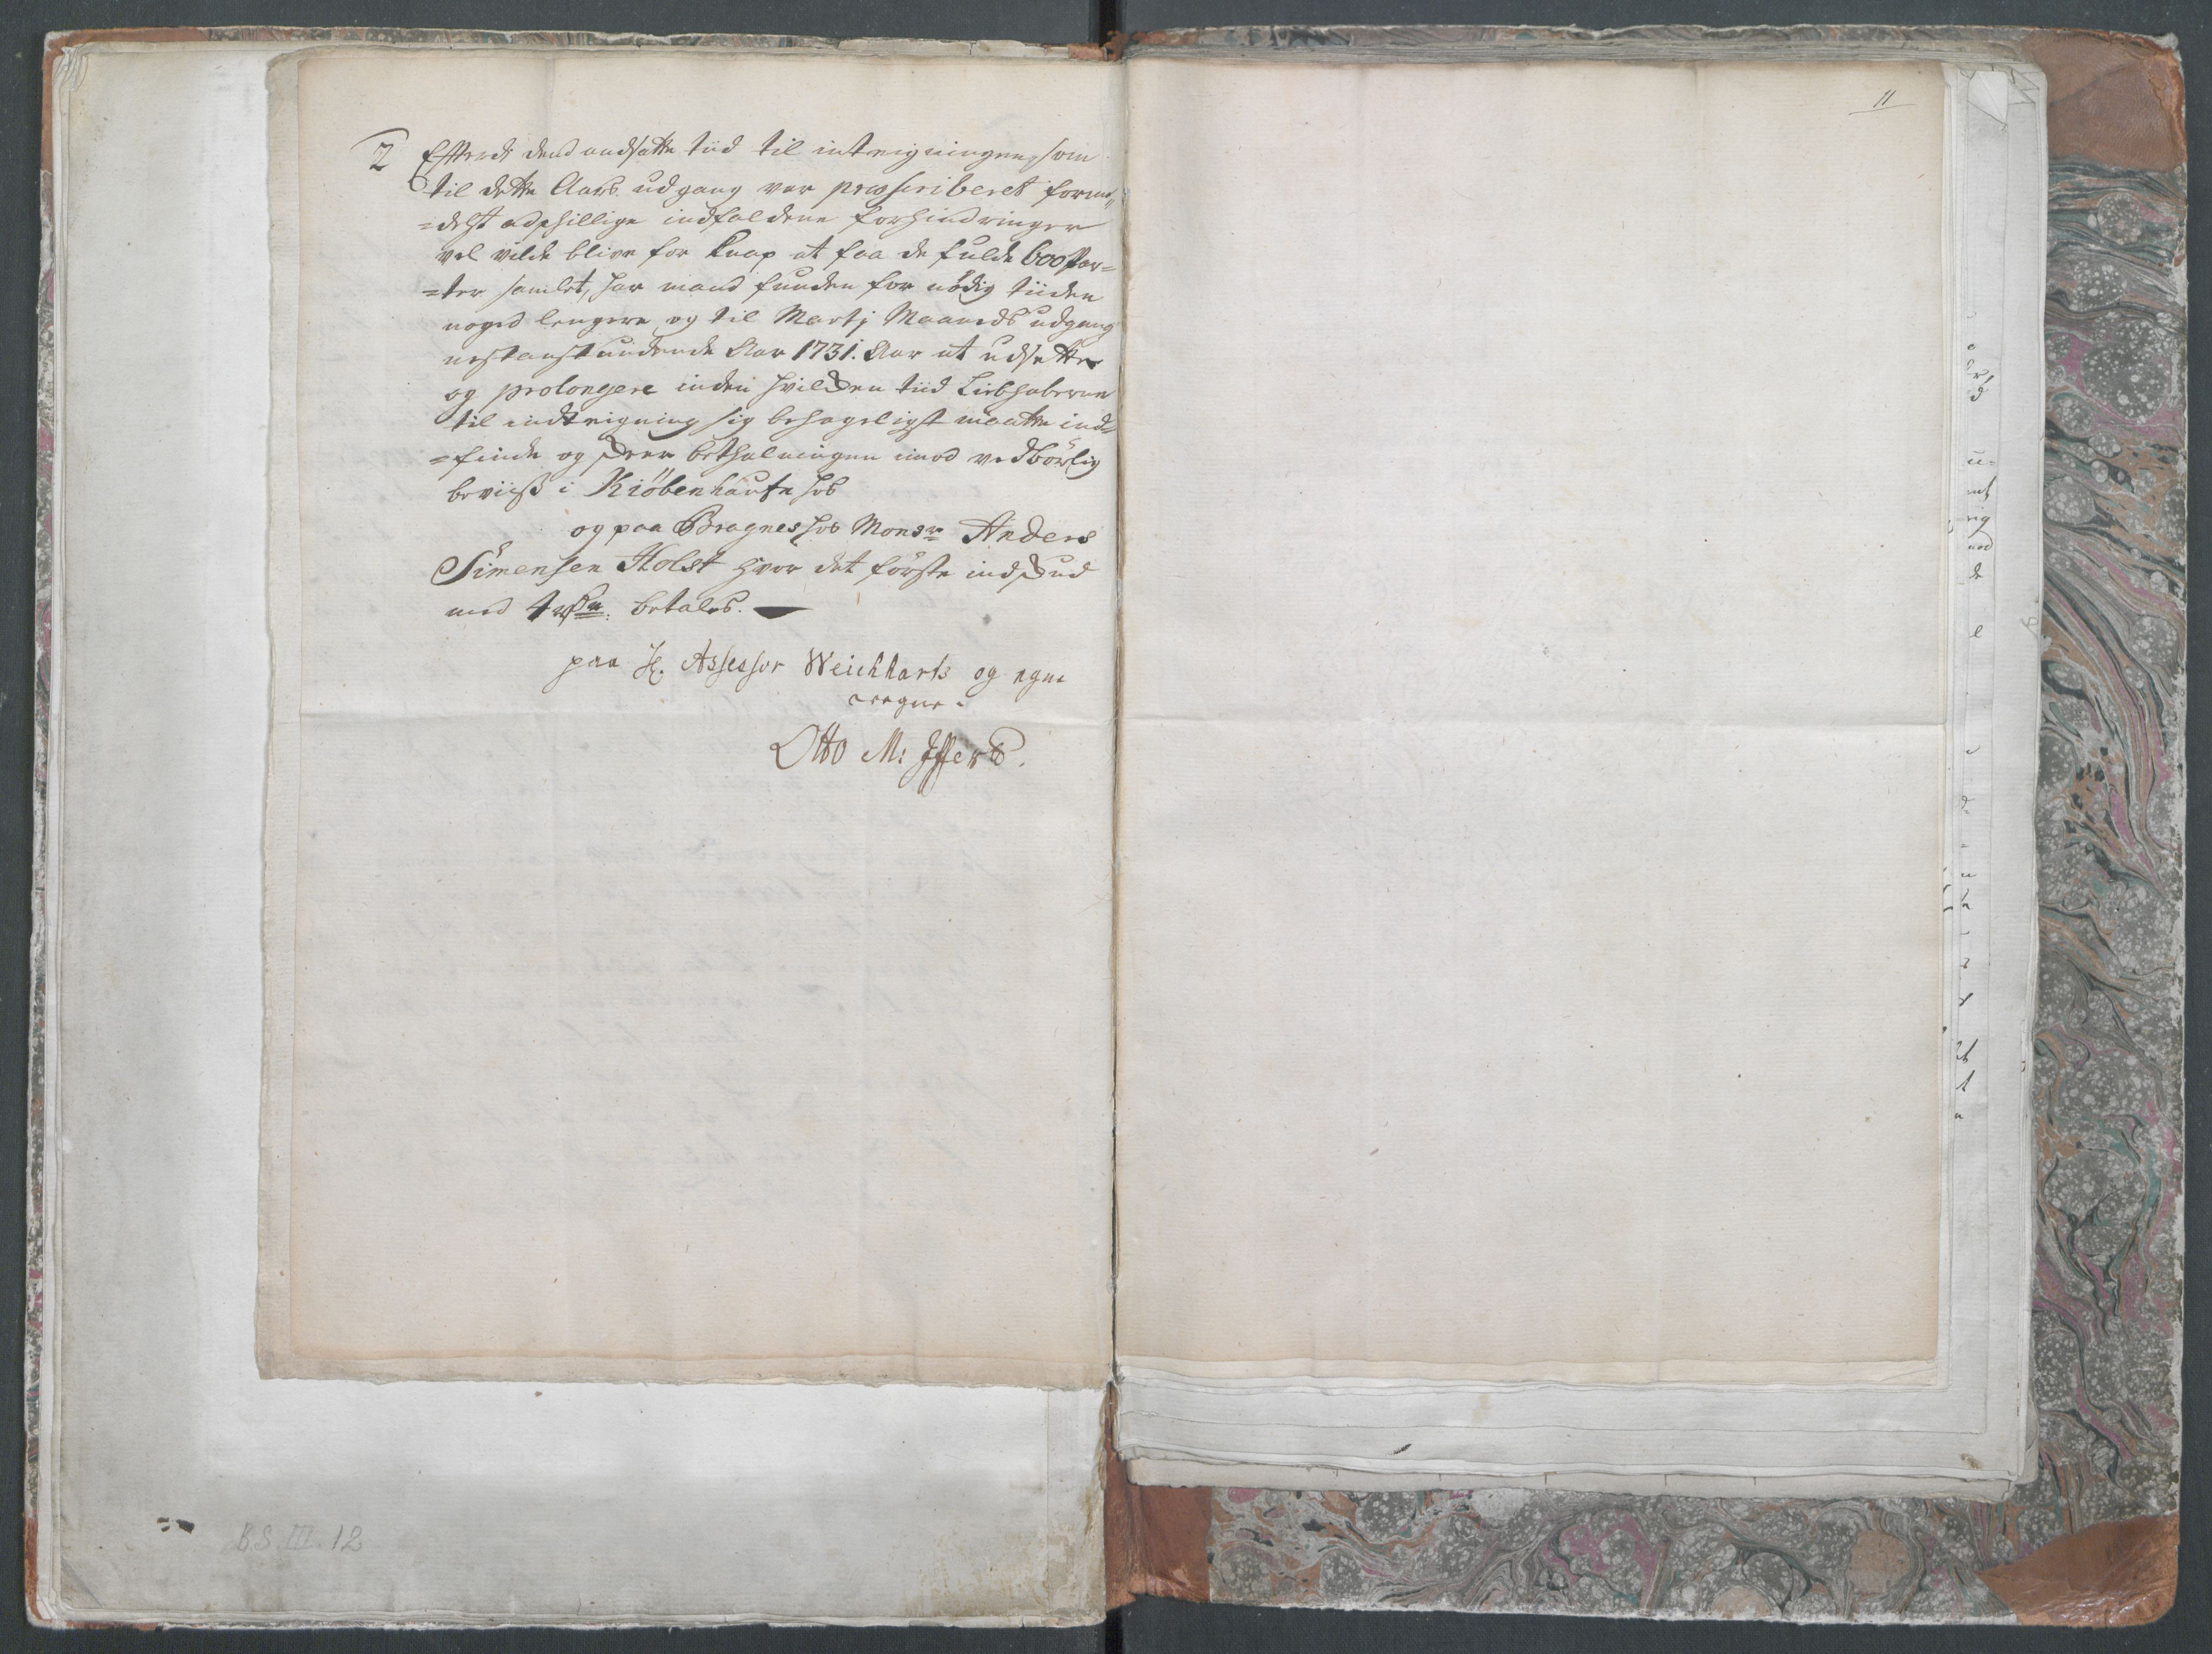 11
2 Efterdi dend andsatte tiid til inteigningen, som
til dette Aars udgang var præscriberet forme-
=delst adschillige indfaldene forhindringer
vel vilde blive for knap at faa de fulde 600 Par=
=ter samlet, har mand funden for nödig tiiden
noged lengere og til Martj Maaneds udgang
nestanstundende Aar 1731. Aar at udsette
og prolongere inden hvilcken tiid Liebhaberne
til indteigning sig behageligst maatte ind=
=finde og derr bethalningen imod vedbörlig
beviiß i Kiöbenhaufn hos
og paa Bragnes hos Monsr Anders
Simensen Holst hvor det förste indskud
med 4 betales.
paa H. Assessor Weichharts og egne
vegne.
Otto M:
BS. III. 12